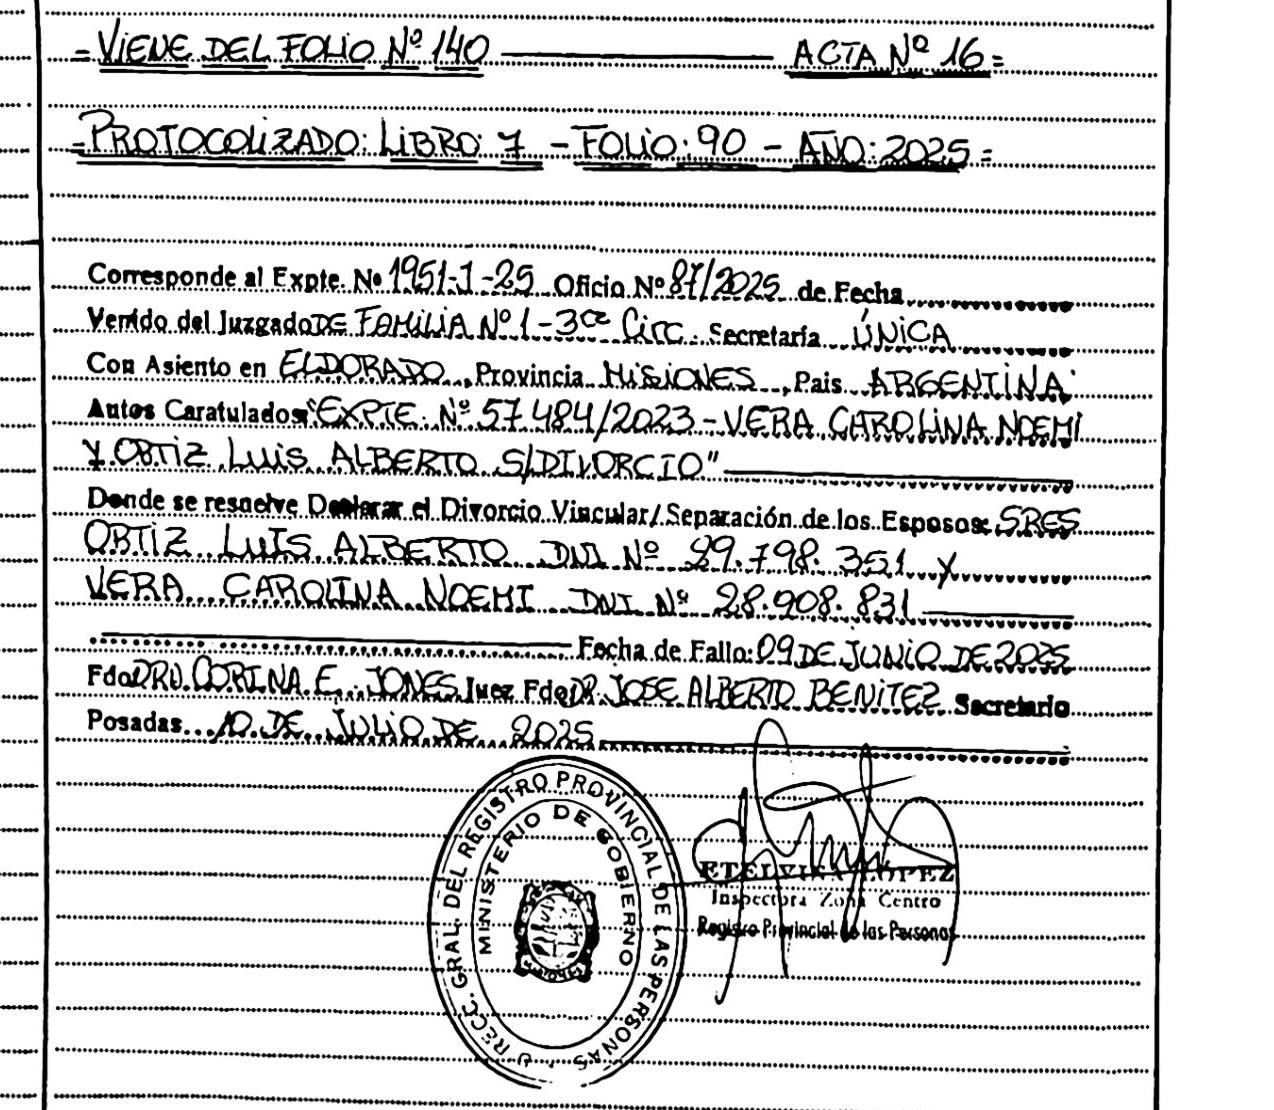 =VIENE DEL FOLIO Nº 140 ACTA Nº 16=
=PROTOCOLIZADO: LIBRO: 7 - FOLIO: 90 - AÑO: 2025=
Corresponde al Expte. Nº 1951-J-25 Oficio Nº 87/2025 de Fecha
Venido del Juzgado DE FAMILIA Nº 1 - 3ra Circ. Secretaría ÚNICA
Con Asiento en ELDORADO, Provincia MISIONES, Pais ARGENTINA
Autos Caratulados "EXPTE. Nº 57484/2023 - VERA CAROLINA NOEMI
Y ORTIZ LUIS ALBERTO S/DIVORCIO"
Donde se resuelve Declarar el Divorcio Vincular/Separación de los Esposos: SRES
ORTIZ LUIS ALBERTO DNI Nº 29.798.351 Y
VERA CAROLINA NOEMI DNI Nº 28.908.831
Fecha de Fallo: 09 DE JUNIO DE 2025
Fdo DRA. CORINA E. JONES Juez Fdo DR. JOSE ALBERTO BENITEZ Secretario
Posadas 10 DE JULIO DE 2025
DIRECC. GRAL. DEL REGISTRO PROVINCIAL DE LAS PERSONAS
MINISTERIO DE GOBIERNO
ETELVINA LOPEZ
Inspectora Zona Centro
Registro Provincial de las Personas